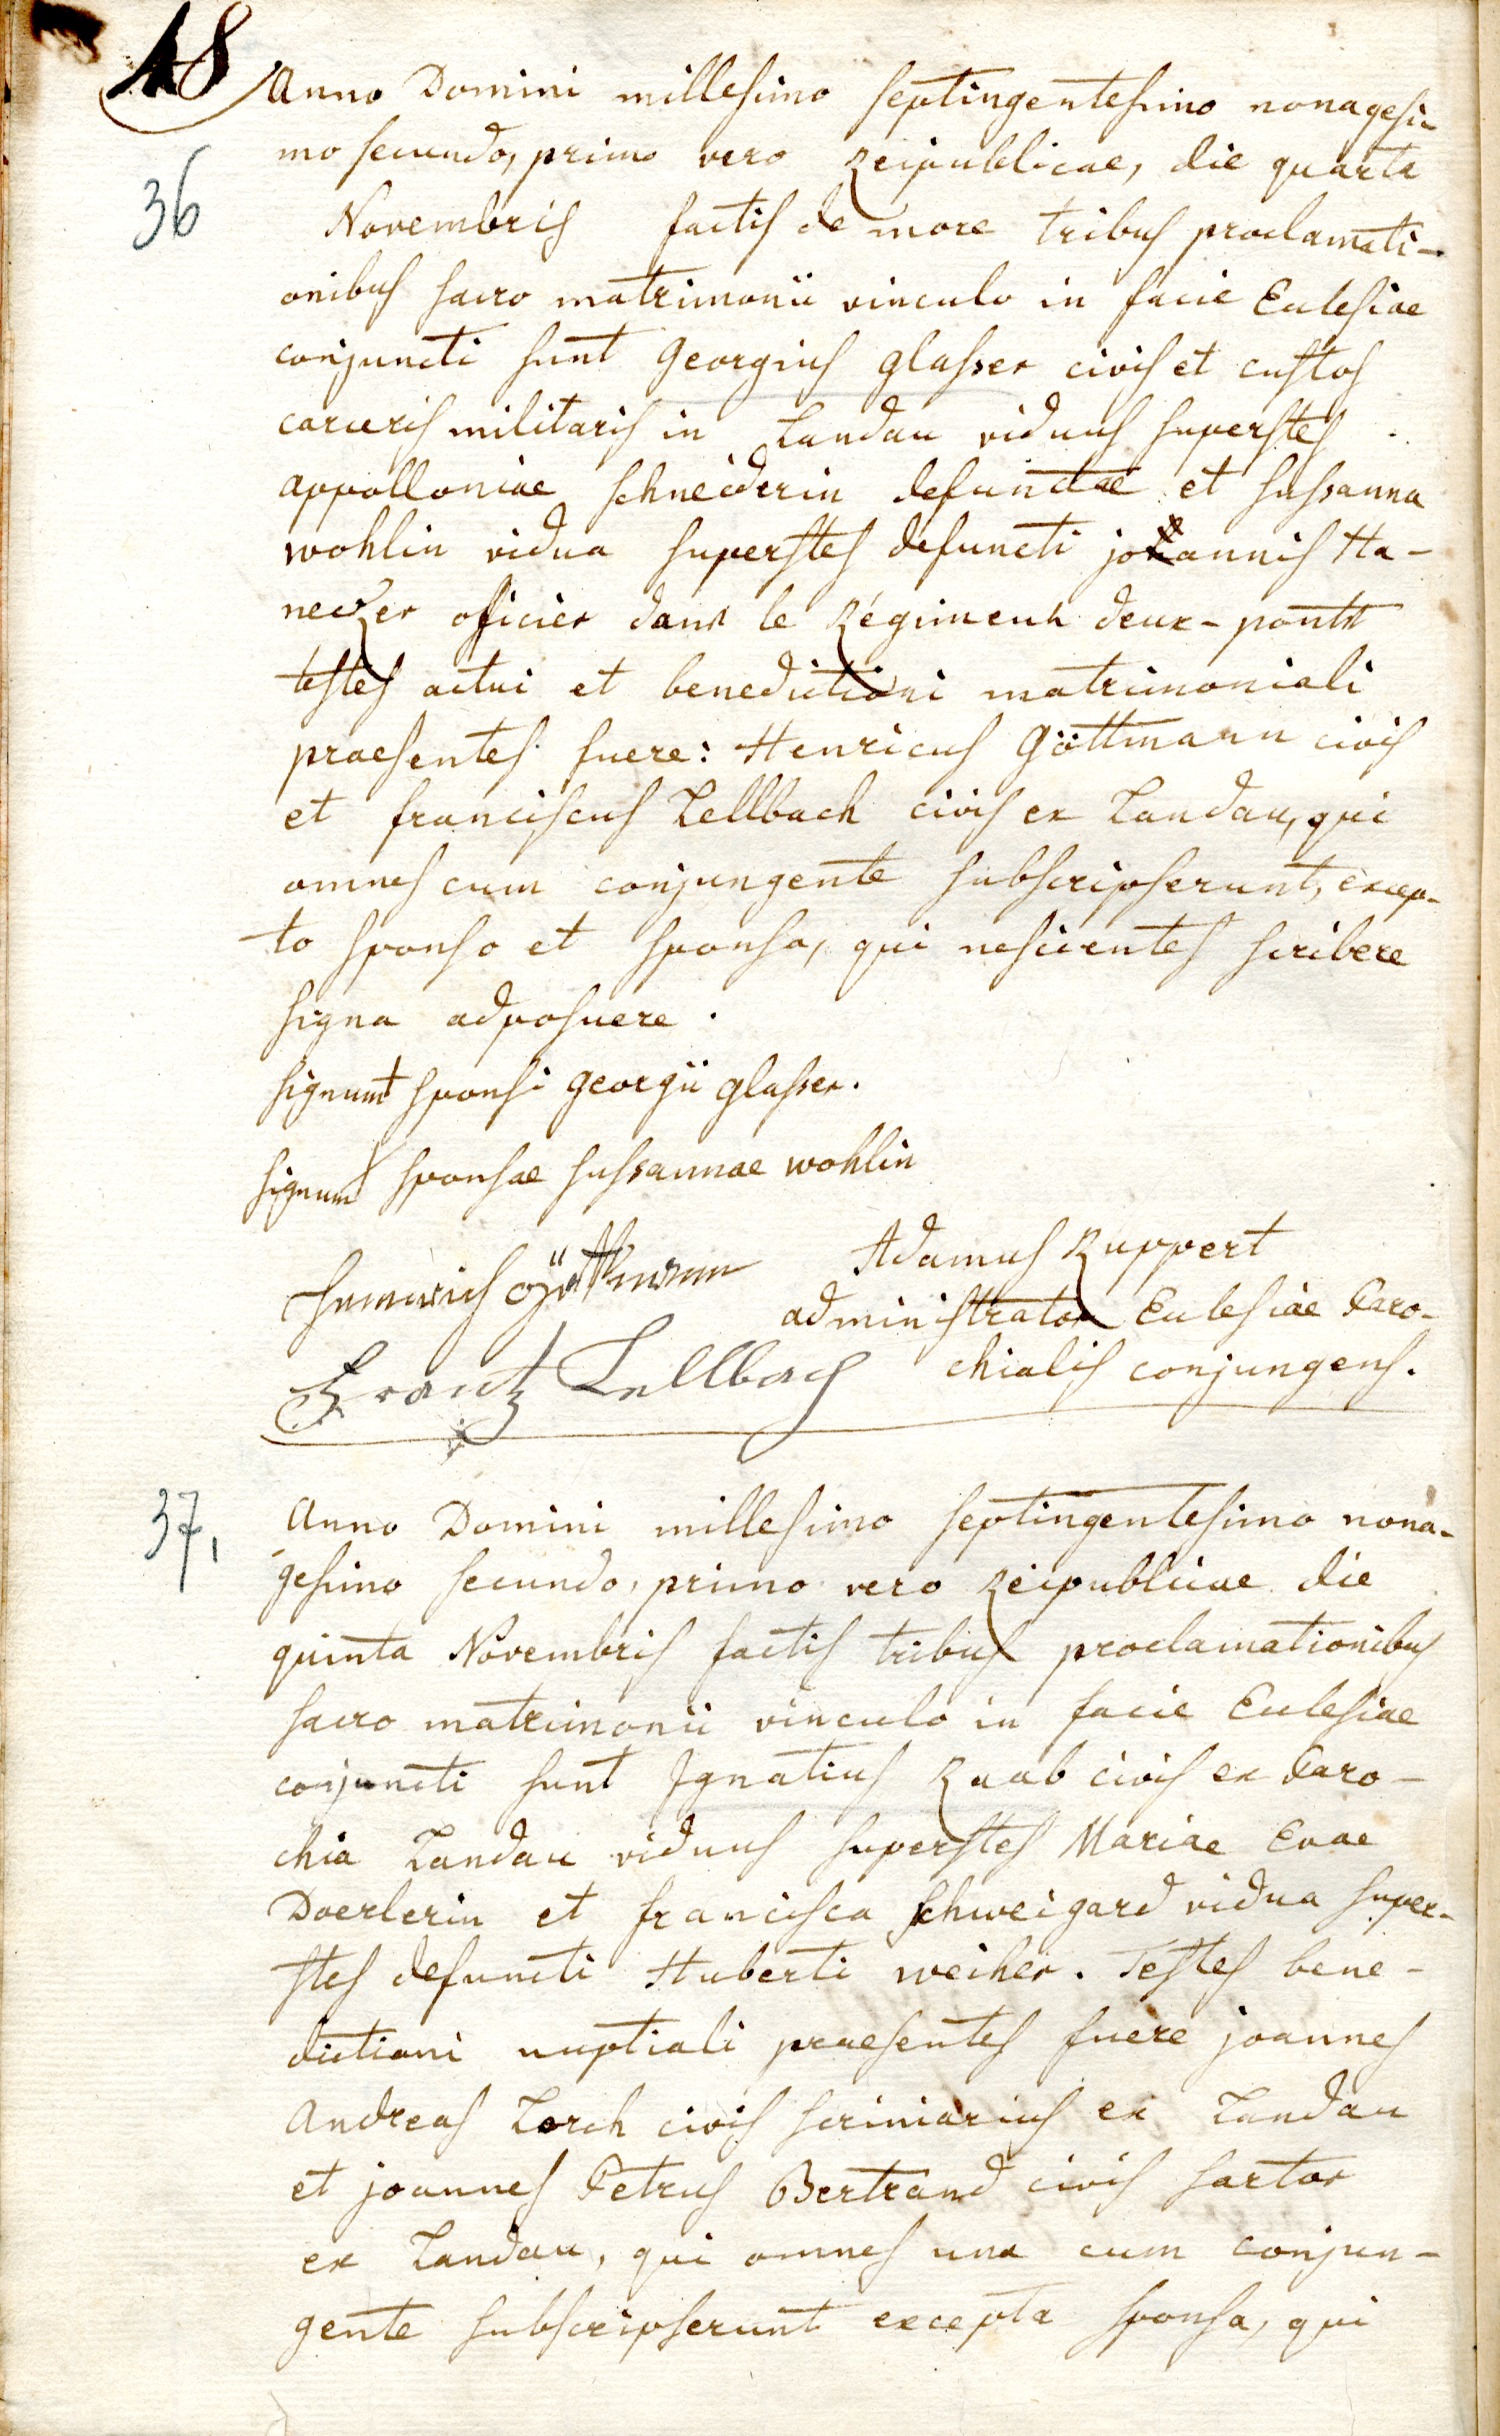 48
Anno Domini millesimo septingentesimo nonagesi-
mo secundo, primo vero Reipublicae, die quarta
36
Novembris factis de more tribus proclamati-
onibus sacro matrimonii vinculo in facie Ecclesiae
conjuncti sunt Georgius Glasser civis et custos
carceris militaris in Landau viduus superstes
appolloniae schneiderin defunctae et sussanna
wohlin vidua superstes defuncti johannis Ha-
necker officier dans le Régiment deux-ponts
testes actui et benedictioni matrimoniali
praesentes fuere: Henricus Göttmann civis
et franciscus Lellbach civis ex Landau, qui
omnes cum conjungente subscripserunt, excep-
to sponso et sponsa, qui nescientes scribere
signa adposuere.
signum + sponsi georgii glasser.
signum / sponsae sussannae wohlin
Heinrich Göttmann
Adamus Ruppert
administrator Ecclesiae Paro-
Frantz Lellbach
chialis conjungens.
37,
Anno Domini millesimo septingentesimo nona-
gesimo secundo, primo vero Reipublicae die
quinta Novembris factis tribus proclamationibus
sacro matrimonii vinculo in facie Ecclesiae
conjuncti sunt Ignatius Raab civis ex Paro-
chia Landau viduus superstes Mariae Evae
Doerlerin et francisca schweigard vidua super-
stes defuncti Huberti weiher. Testes bene-
dictioni nuptiali praesentes fuere joannes
Andreas Lorch civis scriniarius ex Landau
et joannes Petrus Bertrand civis sartor
ex Landau, qui omnes una cum conjun-
gente subscripserunt excepta sponsa, qui